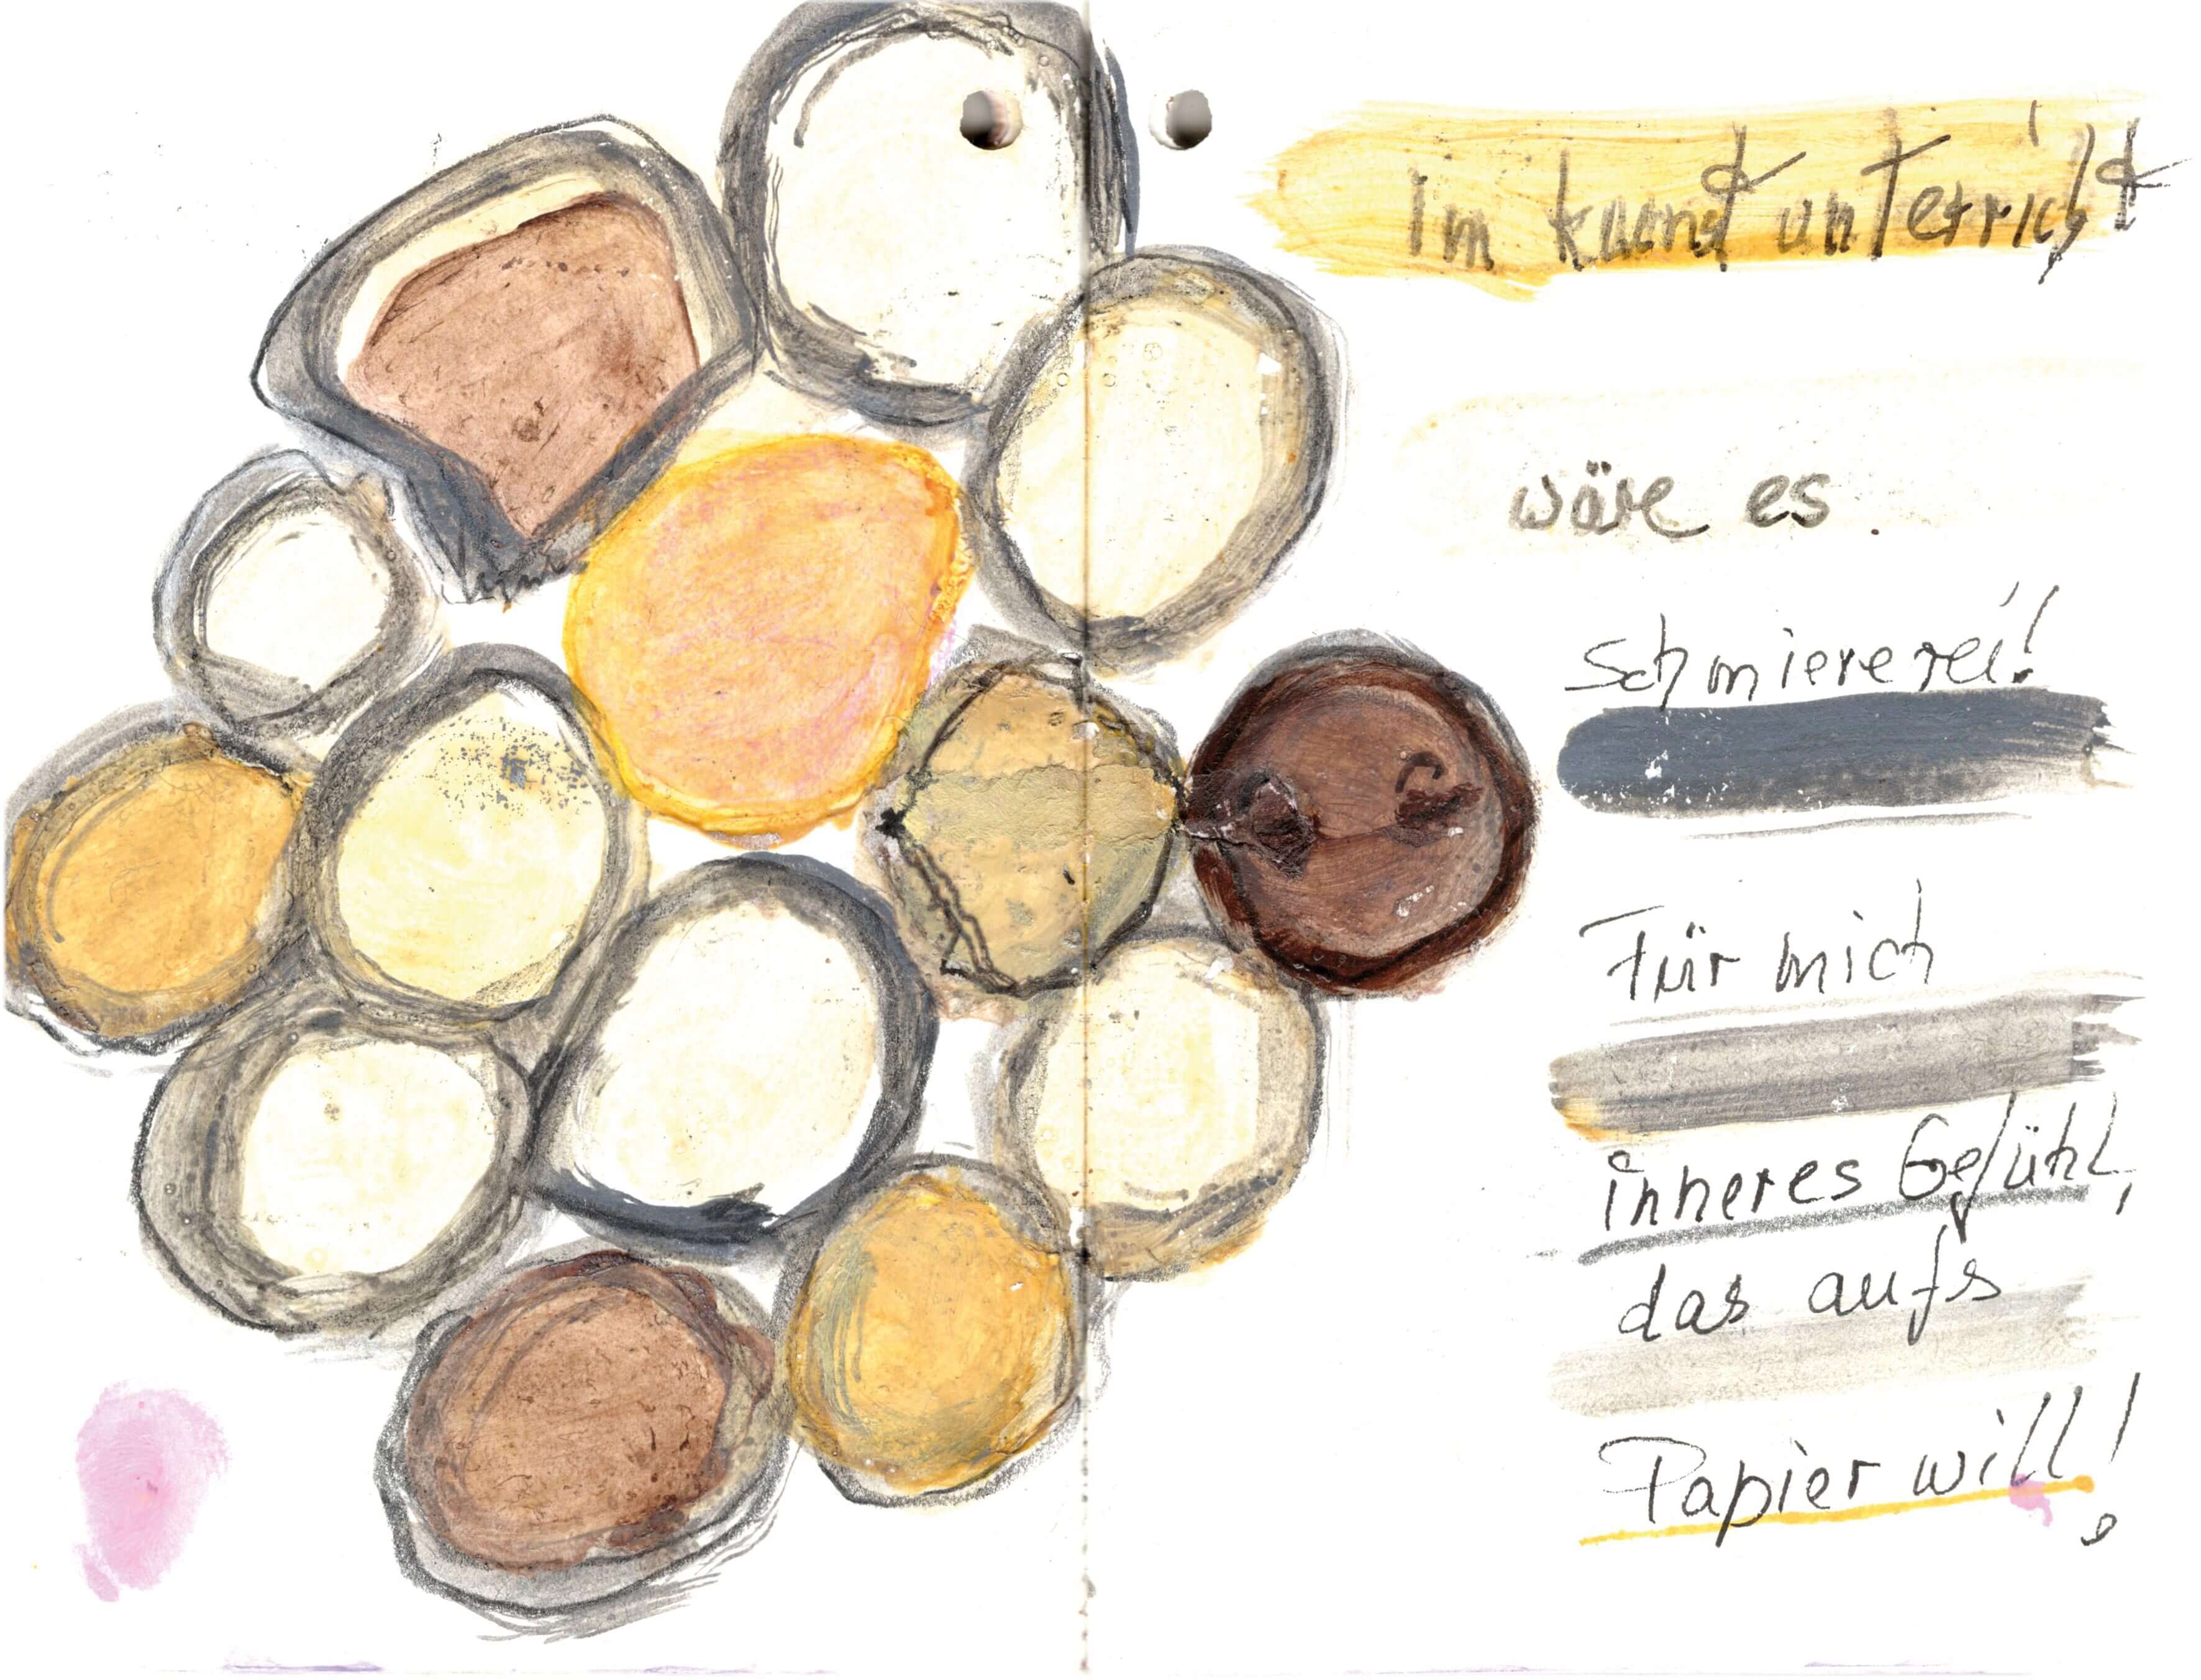 Im kunst unterricht
wäre es.
Schmiererei!
Für mich
inneres Gefühl,
das aufs
Papier will!